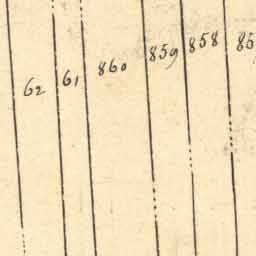 62 61 860 859 858